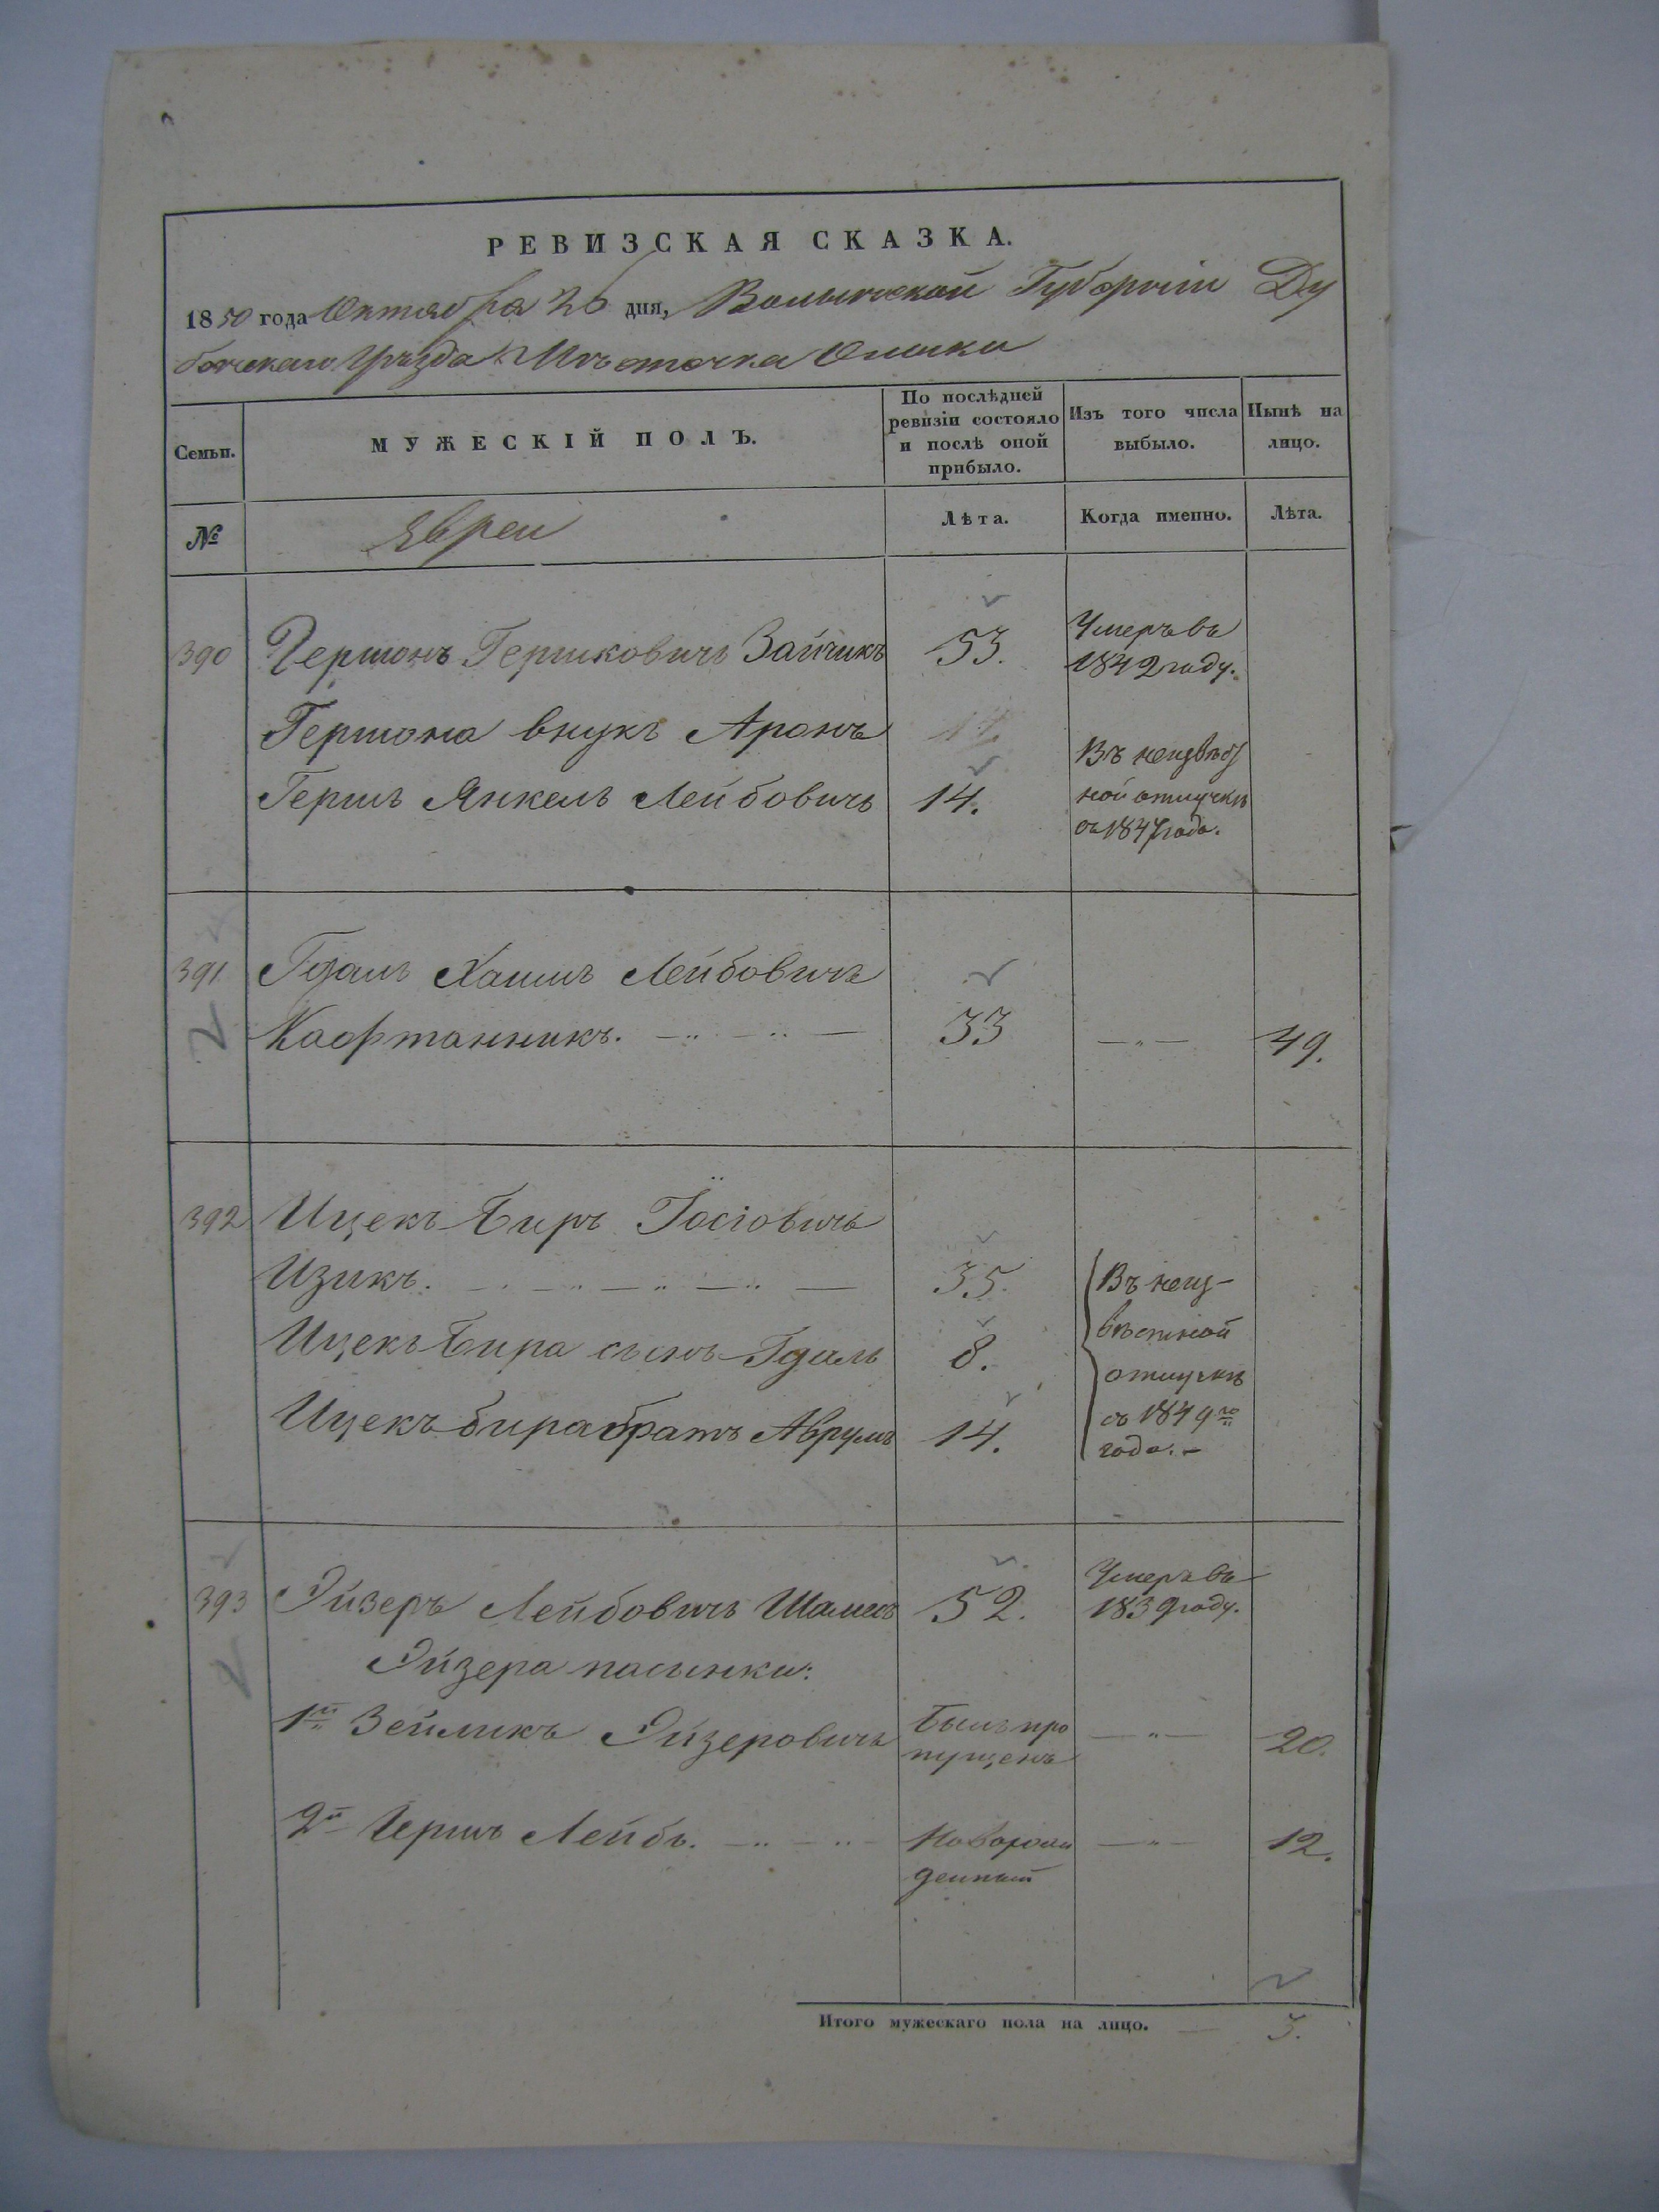 РЕВИЗСКАЯ СКАЗКА.
1850 года Октября 26 дня, Волынской Губернiи Ду
бенскаго Уѣзда Мѣстечка Олыки
Семьи.
МУЖЕСКIЙ ПОЛЪ.
По послѣдней ревизiи состояло и послѣ оной прибыло.
Изъ того числа выбыло.
Нынѣ на лицо.
№
Евреи
Лѣта.
Когда именно.
Лѣта.
390 Гершонъ Гершковичъ Зайчикъ 53. Умеръ въ
1842 году.
Гершона внукъ Аронъ
Гершъ Янкель Лейбовичъ 14. Въ неизвѣст
ной отлучкѣ
съ 1847 года.
391 Гдаль Хаимъ Лейбовичъ
Кафтанникъ. 33 49.
392 Ицекъ Биръ Iосiовичъ
Изикъ. 35. Въ неиз-
вѣстной
Ицекъ Бира сынъ Гдаль 8.
отлучкѣ
Ицекъ Бира братъ Аврумъ 14. съ 1849го
года.-
393 Эйзеръ Лейбовичъ Шамесъ 52. Умеръ въ
1839 году.
Эйзера пасынки:
1й Зейликъ Эйзеровичъ Былъ про
пущенъ 20.
2й Гершъ Лейбъ. Новорож
денный 12.
Итого мужескаго пола на лицо. 3.